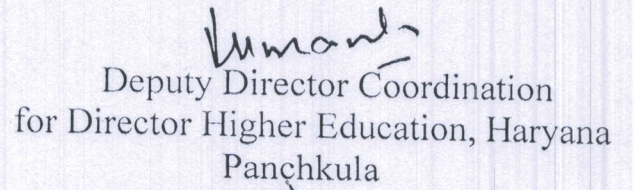 Deputy Director Coordination
for Director Higher Education, Haryana
Panchkula